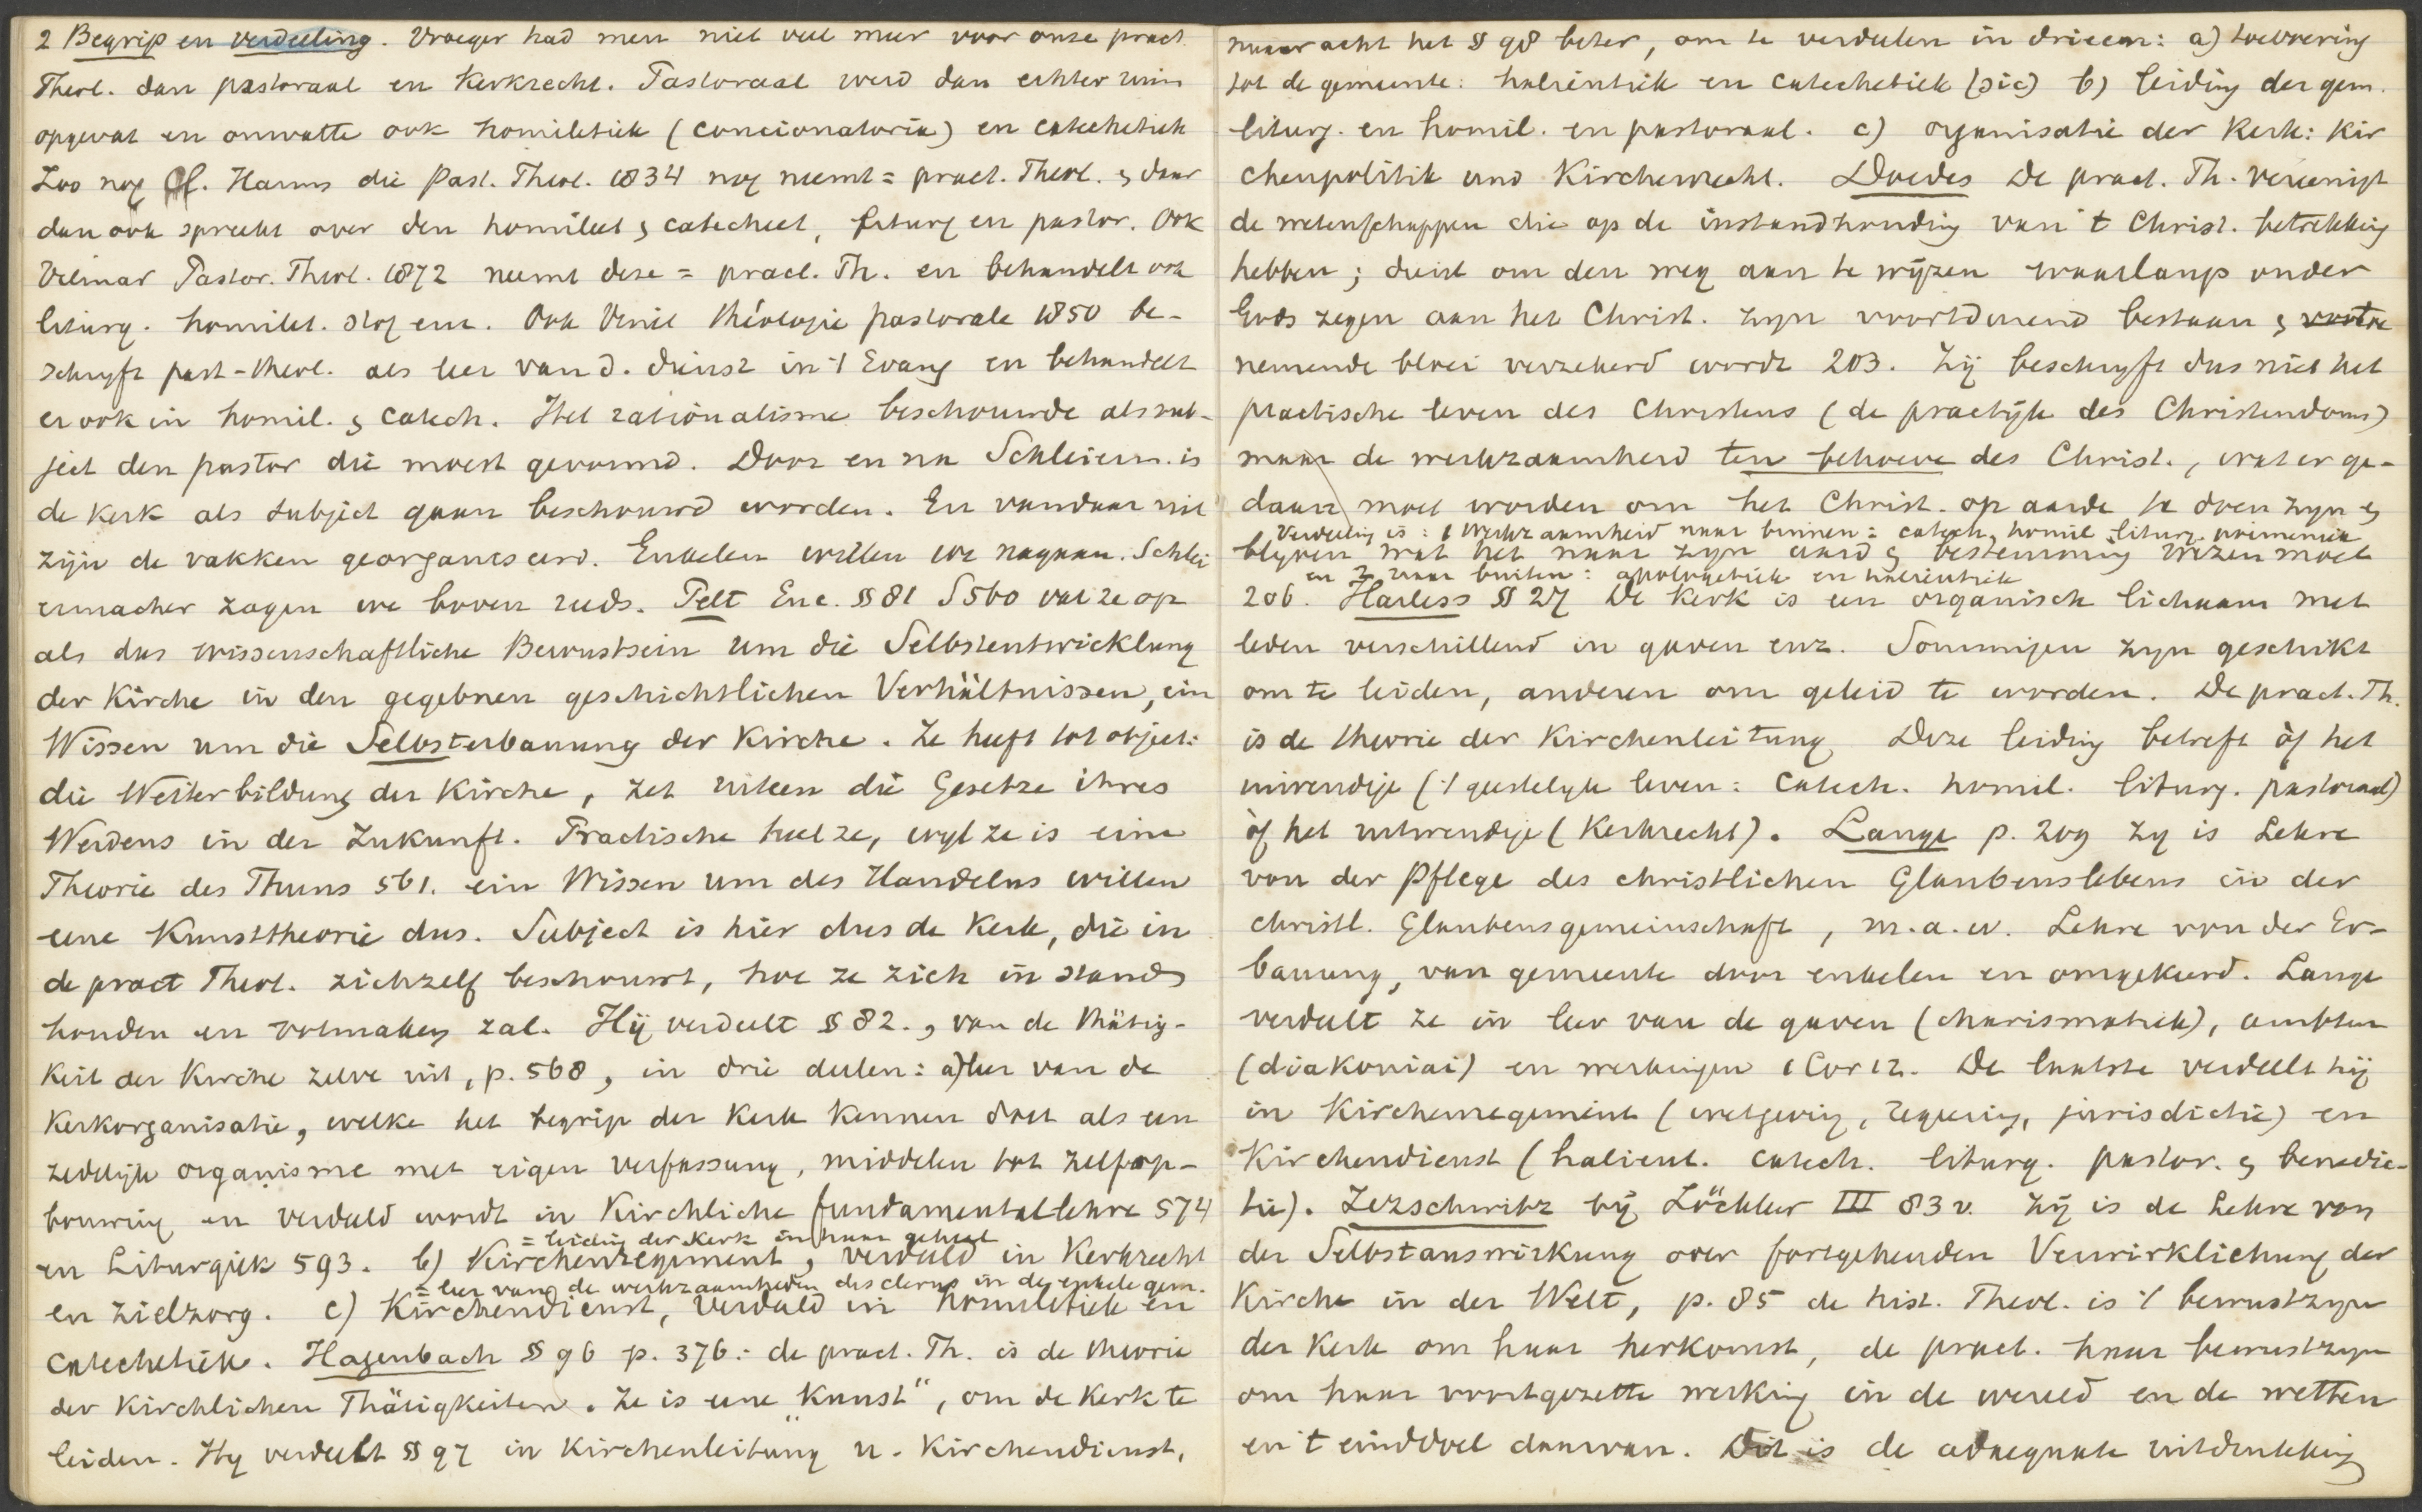 2 Begrip en verdeeling. Vroeger had men niet veel meer voor onze pract.
Theol. dan pastoraal en Kerkrecht. Pastoraal werd dan echter ruim
opgevat en omvatte ook homiletiek (concionatoria) en catechetiek
Zoo nog Cl. Harms die Past. Theol. 1834 nog neemt = pract. Theol. & daar
dan ook spreekt over den homileet & catecheet, liturg en pastor. Ook
Vilmar Pastor. Theol. 1872 neemt deze = pract. Th. en behandelt ook
liturg. homilet. enz. Ook Vinet théologie pastorale 1850 be-
schryft past-theol. als leer van d. dienst in 't Evang en behandelt
er ook in homil. & catech. Het rationalisme beschouwde als sub-
ject den pastor die moest gevormd. Door en na Schleierm. is
de Kerk als subject gaan beschouwd worden. En vandaar uit
zijn de vakken georganiseerd. Enkelen willen we nagaan. Schlei
ermacher zagen we boven reeds. Pelt Enc. § 81 S 560 vat ze op
als das wissenschaftliche Bewustsein um die Selbstentwicklung
der Kirche in den gegebnen geschichtlichen Verhältnissen, ein
Wissen um die Selbsterbauung der Kirche. Ze heeft tot object:
die Weiterbildung der Kirche, zet uiteen die Gesetze ihres
Werdens in der Zukunft. Practische heet ze, wyl ze is eine
Theorie des Thuns 561. ein Wissen um des Handelns willen
eene Kunsttheorie dus. Subject is hier dus de Kerk, die in
de pract Theol. zichzelf beschouwt, hoe ze zich in stand
houden en volmaken zal. Hij verdeelt § 82., van de Thätig-
keit der Kirche zelve uit, p. 568, in drie deelen: a) leer van de
Kerkorganisatie, welke het begrip der Kerk kennen doet als een
zedelijk organisme met eigen verfassung, middelen tot zelfop-
bouwing en verdeeld wordt in Kirchliche fundamentallehre 574
= leiding der Kerk in haar geheel
en Liturgiek 593. b) Kirchenregiment, verdeeld in Kerkrecht
= leer van de werkzaamheden des clerus in de enkele gem.
en zielzorg. c) Kirchendienst, verdeeld in homiletiek en
catechetiek. Hagenbach § 96 p. 376: de pract. Th. is de theorie
der Kirchlichen Thätigkeiten. Ze is eene "Kunst", om de Kerk te
leiden. Hy verdeelt § 97 in Kirchenleitung u. Kirchendienst,
maar acht het § 98 beter, om te verdeelen in drieen: a) toevoering
tot de gemeente: halieutiek en catechetiek (sic) b) leiding der gem.
liturg. en homil. en pastoraal. c) organisatie der Kerk: Kir
chenpolitik und Kirchenrecht. Doedes De pract. Th. vereenigt
de wetenschappen die op de instandhouding van 't Christ. betrekking
hebben; dient om den weg aan te wijzen waarlangs onder
Gods zegen aan het Christ. zyn voortdurend bestaan &
nemende bloei verzekerd wordt 203. Zij beschryft dus niet het
practische leven des Christens (de practijk des Christendoms)
maar de werkzaamheid ten behoeve des Christ., wat er ge-
daan moet worden om het Christ. op aarde te doen zyn &
Verdeeling is: 1 Werkzaamheid naar binnen: catech, homil liturg poimeniek
blyven wat het naar zyn aard & bestemming wezen moet
en 2 naar buiten: apologetiek en halieutiek
206. Harless § 27 De Kerk is een organisch lichaam met
leden verschillend in gaven enz. Sommigen zyn geschikt
om te leiden, anderen om geleid te worden. De pract. Th.
is de theorie der Kirchenleitung Deze leiding betreft òf het
inwendige ('t geestelyke leven: catech. homil. liturg. pastoraal)
òf het uitwendige (Kerkrecht). Lange p. 209 zy is Lehre
von der Pflege des christlichen Glaubenslebens in der
christl. Glaubensgemeinschaft, m.a.w. Lehre von der Er-
bauung, van gemeente door enkelen en omgekeerd. Lange
verdeelt ze in leer van de gaven (charismatiek), ambten
(diakoniai) en werkingen 1 Cor 12. De laatste verdeelt hij
in Kirchenregiment (wetgeving, regeering, jurisdictie) en
Kirchendienst (halieut. catech. liturg. pastor. & benedic-
tie). Zezschwitz bij Zöckler III 83 v. Zij is de Lehre von
der Selbstauswirkung oder fortgehenden Verwirklichung der
Kirche in der Welt, p. 85 de hist. Theol. is 't bewustzyn
der Kerk om haar herkomst, de pract. haar bewustzyn
om haar voortgezette werking in de wereld en de wetten
en 't einddoel daarvan. Dit is de adaequate uitdrukking